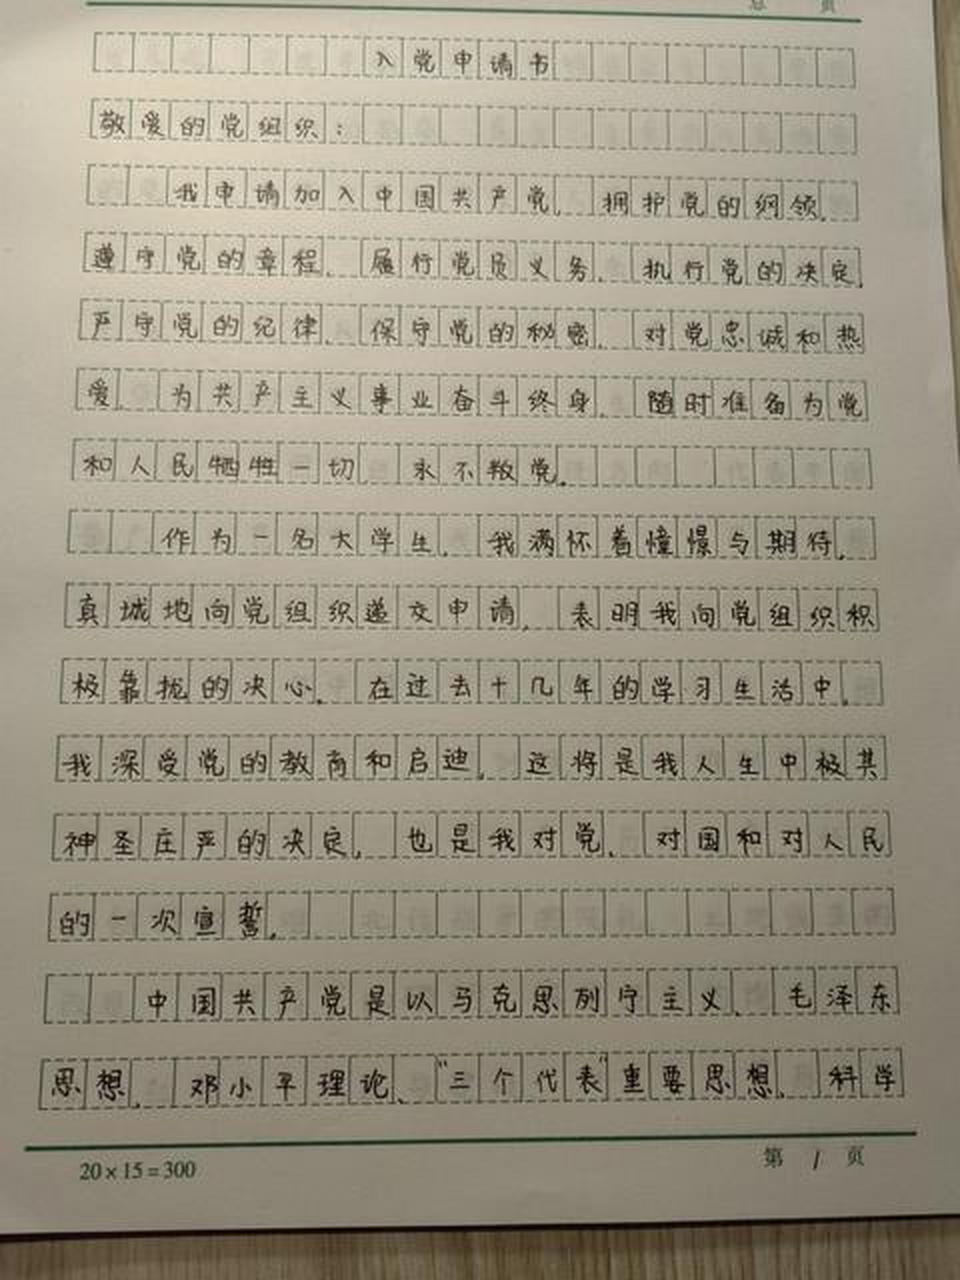 总 页
入党申请书
敬爱的党组织：
我申请加入中国共产党，拥护党的纲领，
遵守党的章程，履行党员义务，执行党的决定，
严守党的纪律，保守党的秘密，对党忠诚和热
爱，为共产主义事业奋斗终身，随时准备为党
和人民牺牲一切，永不叛党。
作为一名大学生，我满怀着憧憬与期待，
真城地向党组织递交申请，表明我向党组织积
极靠拢的决心。在过去十几年的学习生活中，
我深受党的教育和启迪，这将是我人生中极其
神圣庄严的决定，也是我对党、对国和对人民
的一次宣誓。
中国共产党是以马克思列宁主义、毛泽东
思想、邓小平理论、"三个代表"重要思想、科学
20×15=300 第 1 页